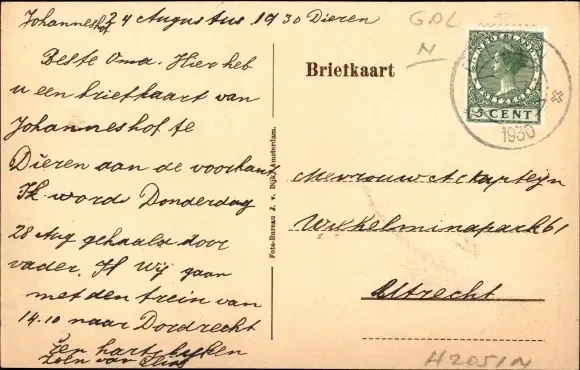 Johanneshof 24 Augustus 1930 Dieren
Beste Oma. Hier heb
u een briefkaart van
Johanneshof te
Dieren aan de voorkant
Ik word Donderdag
28 Aug gehaald door
vader. Wij gaan
met den trein van
14.10 naar Dordrecht
Een hartelijken
zoen van
Foto-Bureau J. v. Dijk, Amsterdam.
Briefkaart
GDL
N
NEDERLAND
5 CENT
1930
Mevrouw A Kapteijn
Wilhelminapark 61
Utrecht
H2051N